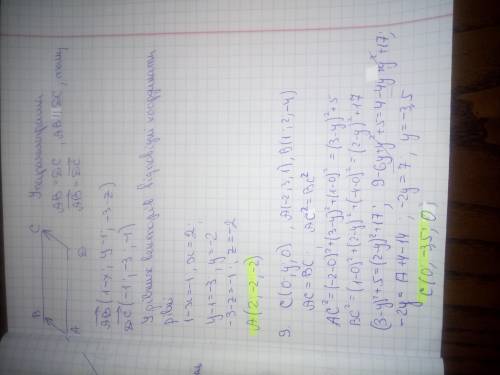 B C
A D
У паралелограма
AB = DC, AB || DC, тому
AB = DC
AB (1-x; y-1; -3-z)
DC (-1; -3; -1)
У рівних векторів відповідні координати
рівні
1-x=-1, x=2
y-1=-3, y=-2
-3-z=-1, z=-2
A(2; -2; -2)
9. C(0; y; 0), A(-2; 3; 1), B(1; 2; -4)
AC = BC AC² = BC²
AC² = (-2-0)² + (3-y)² + (1-0)² = (3-y)² + 5
BC² = (1-0)² + (2-y)² + (-4-0)² = (2-y)² + 17
(3-y)² + 5 = (2-y)² + 17; 9-6y+y²+5 = 4-4y+y²+17;
-2y = 17+4-14; -2y = 7, y = -3,5
C(0; -3,5; 0)